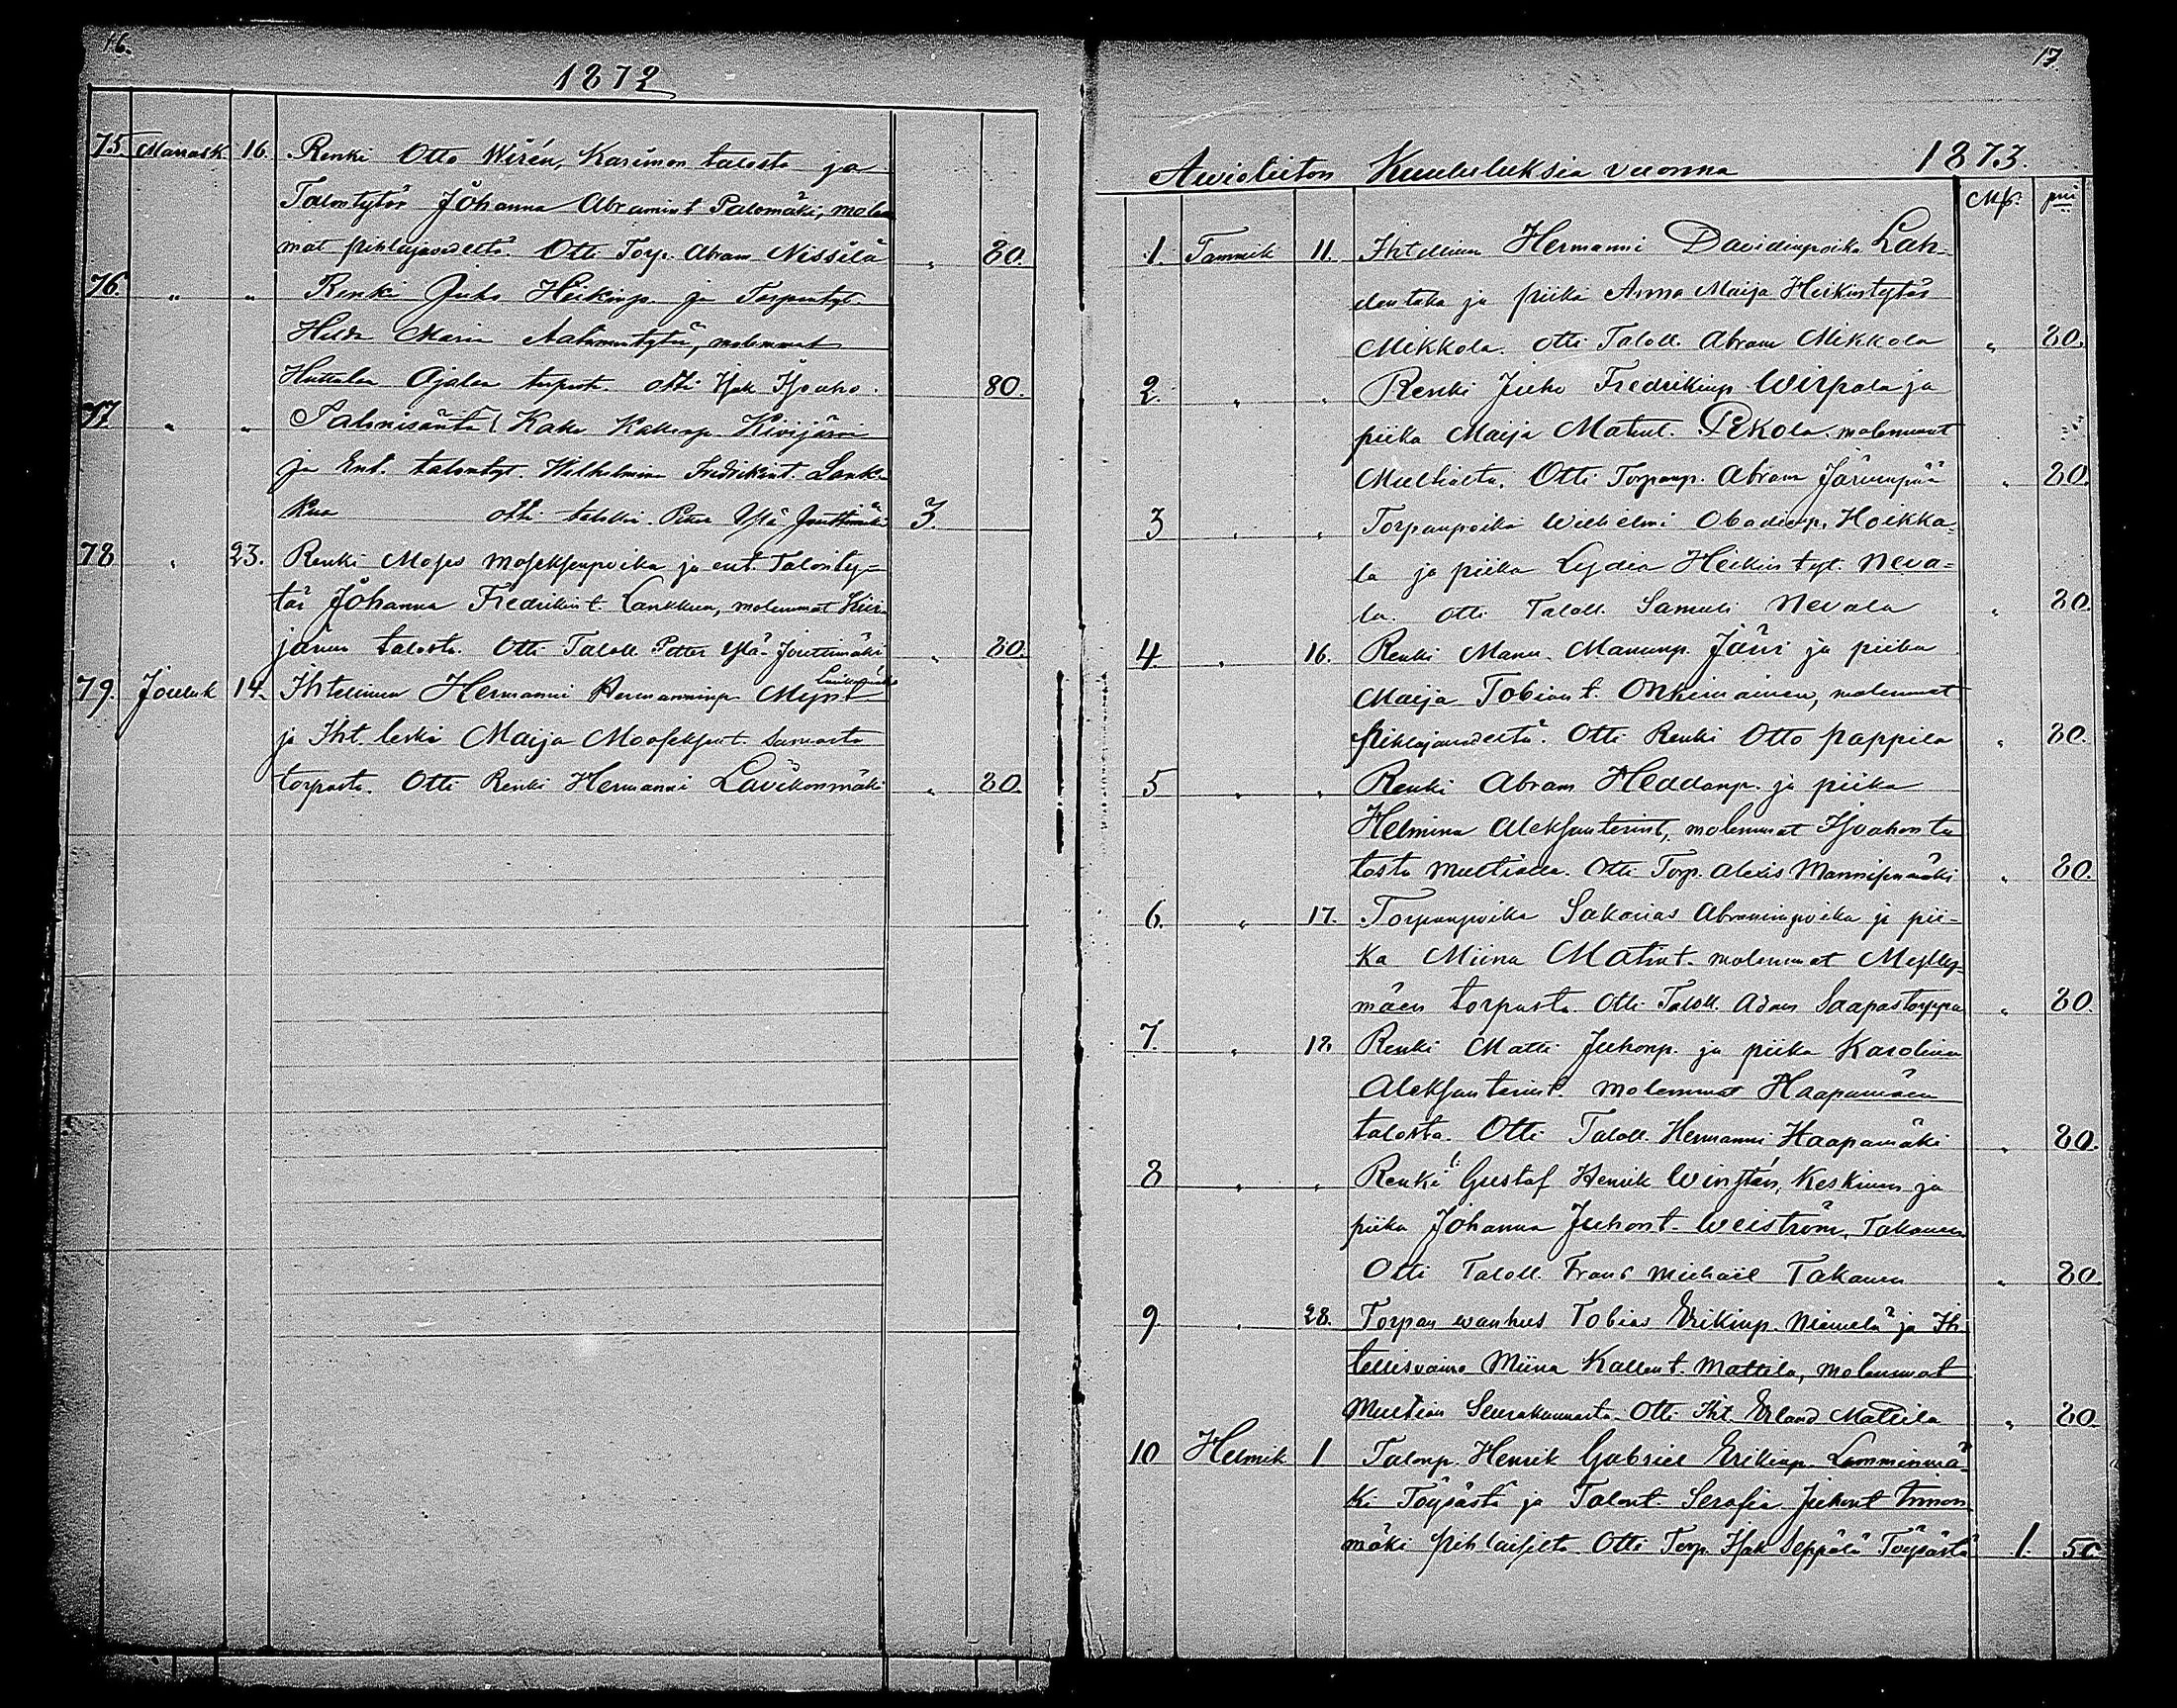 16.
1872
75. Marrask 16. Renki Otto Wirén, Karimon talosta ja
Talontytär Johanna Abramint Palomäki, molem
mat pihlajavedeltä. Otti Torp. Abram Nissilä „ 80.
76. „ „ Renki Juho Heikinp. ja Torpantyt.
Hilda Maria Aataminytär, molemmat
Huttulan Ajalan torpast. Otti Isak Isoaho. 80.
77 „ „ Talonisäntä Kalle Kallenp. Kivijärvi
ja Ent. talontyt. Wilhelmina Fredrikint. Lank-
kua otti talolli. Petter Ylä Jouttimäki 3.
78 „ 23. Renki Moses Moseksenpoika ja ent. Talonty=
tär Johanna Fredrikint. Lankkua, molemmat Kivi
järven talosta. Otti Taloll. Petter Ylä-Jouttimäki „ 80.
79. Jouluk 14. Ihtellinen Hermanni Hermanninp.
ja Iht. leski Maija Mooseksent.
torpasta. Otti Renki Hermanni Lavikonmäki „ 80.
17.
Awioliiton Kuuluksia vuonna 1873.
Mk. pni
1. Tammik 11. Ihtellinen Hermanni Davidinpoika Lah-
dentaka ja piika Anna Maija Heikintytär
Mikkola. Otti Taloll. Abram Mikkola „ 80.
2. „ „ Renki Juho Fredrikinp. Wirpala ja
piika Maija Matint. Pekola molemmat
Multialta. Otti Torpanp. Abram Järvenpää „ 80.
3 „ „ Torpanpoika Wilhelmi Obadianp. Hoikka-
la ja piika Lydia Heikin tyt. Neva=
la. Otti Taloll. Samuli Nevala „ 80.
4 „ 16. Renki Manu Manunp. Järvi ja piika
Maija Tobiant. Onkimainen, molemmat
Pihlajavedeltä. Otti Renki Otto pappila „ 80.
5 „ „ Renki Abram Heddanp. ja piika
Helmina Aleksanterint, molemmat Isoahon ta
losta Multialla. Otti Torp. Alexis Mannisenmäki „ 80.
6. „ 17. Torpanpoika Sakarias Abraminpoika ja pii-
ka Miina Matint. molemmat Mylly-
mäen torpasta. Otti Taloll. Adam Saapastorppa „ 80.
7. „ 18. Renki Matti Juhonp. ja piika Karolina
Aleksanterint. molemmat Haapamäen
talosta. Otti Taloll. Hermanni Haapamäki „ 80.
8 „ „ Renki Gustaf Henrik Wingtén, Keskinen ja
piika Johanna Juhont. Weiström, Takanen
Otti Taloll. Frans Michaël Takanen „ 80.
9 „ 28. Torpan wanhus Tobias Erikinp. Niemelä ja Ih
tellisvaimo Miina Kallent. Mattila, molemmat
Multian Seurakunnasta. Otti Iht. Erland Mattila „ 80.
10 Helmik 1 Talonp. Henrik Gabriel Erikinp. Lamminmä
ki Töysästä ja Talont. Serafia Juhont
mäki pihlaisilta Otti Torp. Isak Seppälä Töysästä 1. 50.